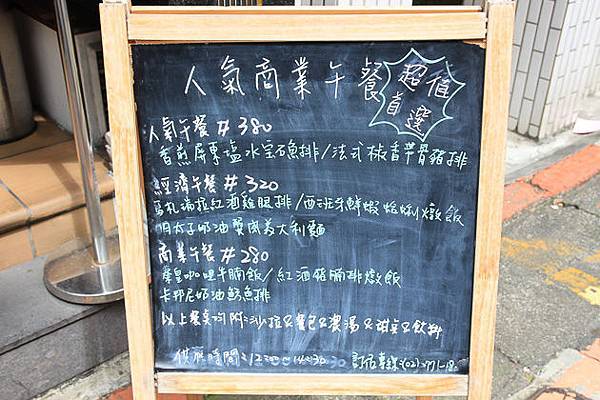 人氣商業午餐
超值
首選
人氣午餐 #380
香煎屏東鹽水宝石魚排/法式椒香帶骨豬排
經濟午餐 #320
馬札瑞拉紅酒雞腿排/西班牙鮮蝦蛤蜊燉飯
明太子奶油雙貝義大利麵
商業午餐 #280
秦皇咖哩牛腩飯/紅酒豬腩排燉飯
卡邦尼奶油鯛魚排
以上餐点均附:沙拉&餐包&濃湯&甜点&飲料
供應時間:12:00~14:30
訂位專線:(02)